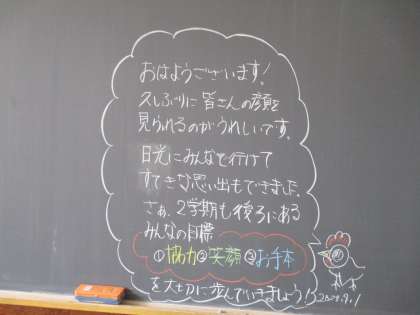 おはようございます!
久しぶりに皆さんの顔を
見られるのがうれしいです。
日光にみんなで行けて
すてきな思い出もできました。
さぁ、2学期も後ろにある
みんなの目標
①協力②笑顔③お手本
を大切に歩んでいきましょう!